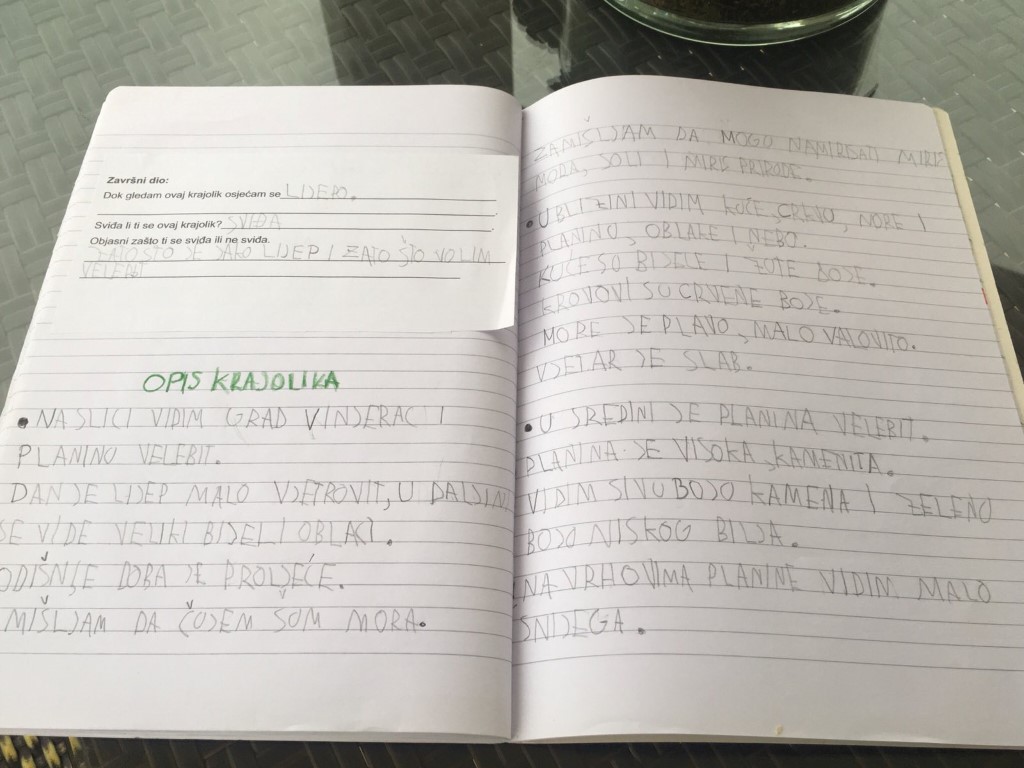 Završni dio:
Dok gledam ovaj krajolik osjećam se LIJEPO.
Sviđa li ti se ovaj krajolik? SVIĐA
Objasni zašto ti se sviđa ili ne sviđa.
ZATO ŠTO JE JAKO LIJEP I ZATO ŠTO VOLIM
VELEBIT
OPIS KRAJOLIKA
• NA SLICI VIDIM GRAD VINJERAC I
PLANINU VELEBIT.
DAN JE LIJEP MALO VJETROVIT, U DALJINI
SE VIDE VELIKI BIJELI OBLACI.
ODIŠNJE DOBA JE PROLJEĆE.
MIŠLJAM DA ČUJEM ŠUM MORA.
ZAMIŠLJAM DA MOGU NAMIRISATI MIRIS
MORA, SOLI I MIRIS PRIRODE.
• U BLIZINI VIDIM KUĆE, CRKVU, MORE I
PLANINU, OBLAKE I NEBO.
KUĆE SU BIJELE I ŽUTE BOJE.
KROVOVI SU CRVENE BOJE.
MORE JE PLAVO, MALO VALOVITO.
VJETAR JE SLAB.
• U SREDINI JE PLANINA VELEBIT.
PLANINA JE VISOKA, KAMENITA.
VIDIM SIVU BOJU KAMENA I ZELENU
BOJU NISKOG BILJA.
NA VRHOVIMA PLANINE VIDIM MALO
SNIJEGA.